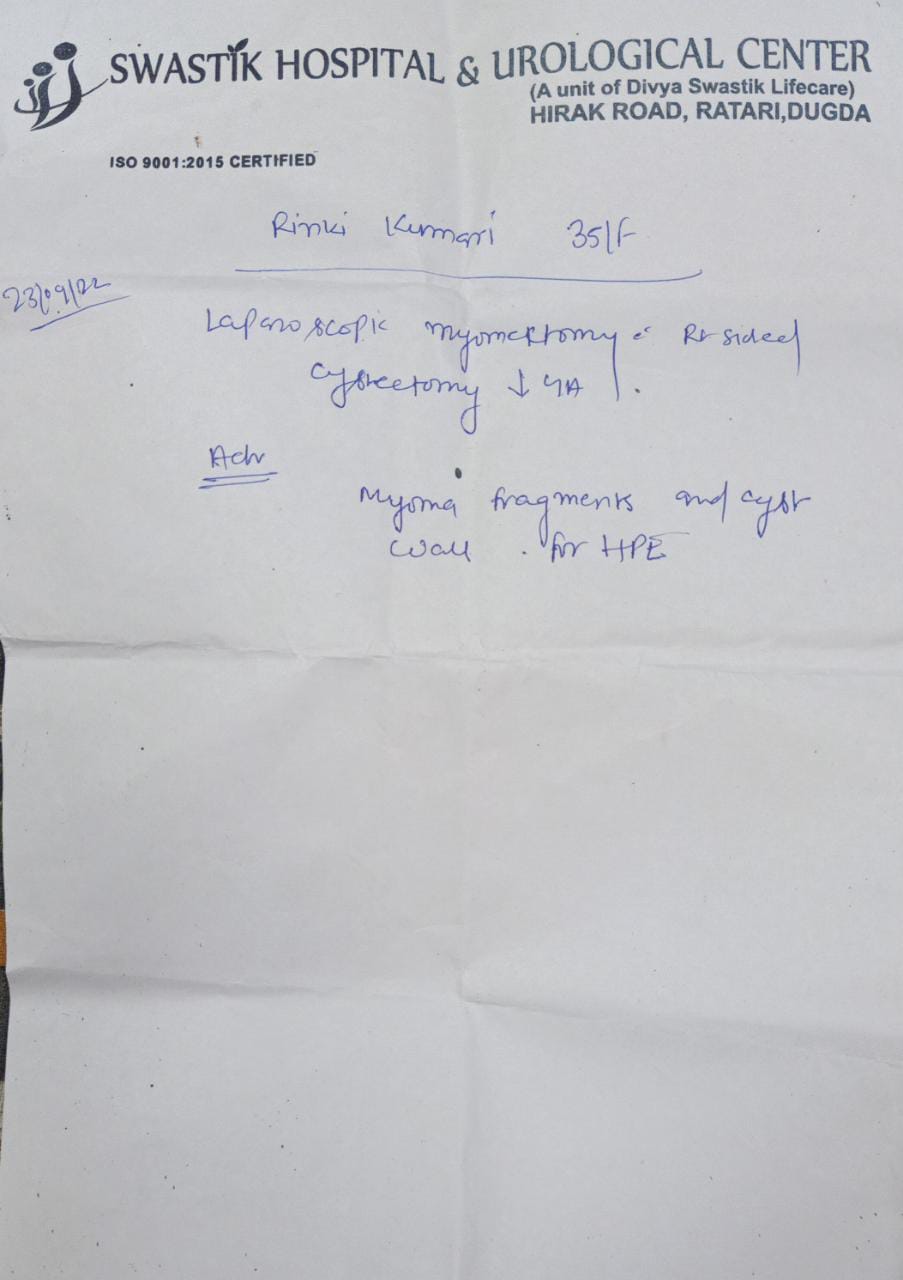 SWASTIK HOSPITAL & UROLOGICAL CENTER
(A unit of Divya Swastik Lifecare)
HIRAK ROAD, RATARI,DUGDA
ISO 9001:2015 CERTIFIED
Rinki Kumari 35/F
23/09/22
Laparoscopic myomectomy c Rt sided
cystectomy ↓ GA
Adv
Myoma fragments and cyst
wall for HPE